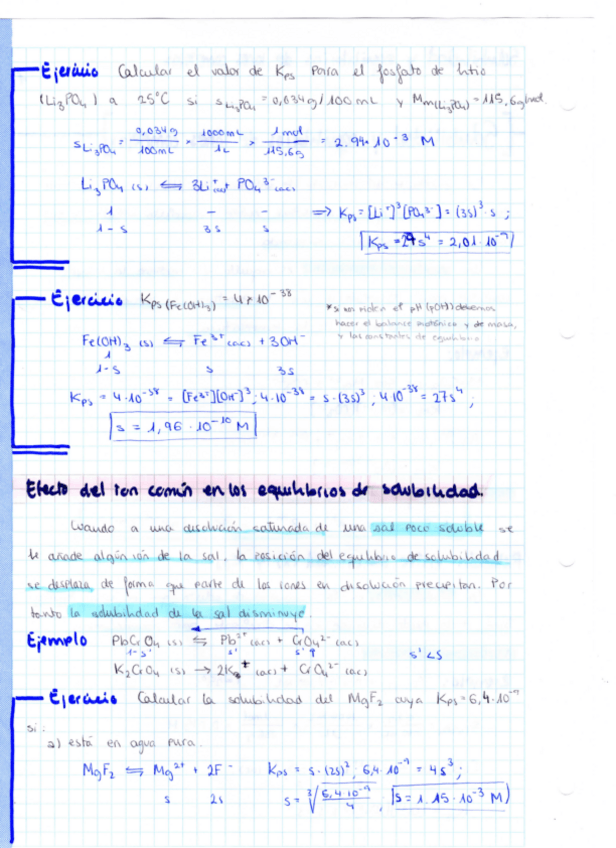 Ejercicio Calcular el valor de Kps para el fosfato de litio
(Li₃PO₄) a 25°C si s Li₃PO₄ = 0,034g/100mL y Mm(Li₃PO₄) = 115,6g/mol.
sLi₃PO₄ = 0,034g/100mL × 1000mL/1L × 1mol/115,6g = 2.94·10⁻³ M
Li₃PO₄ (s) ⇆ 3Li⁺(ac) + PO₄³⁻(ac)
1 – – ⇒ Kps = [Li⁺]³[PO₄³⁻] = (3s)³·s ;
1-s 3s s
Kps = 27s⁴ = 2,01·10⁻⁹
Ejercicio Kps (Fe(OH)₃) = 4·10⁻³⁸
*si nos piden el pH (pOH) debemos
hacer el balance protónico y de masa,
y las constantes de equilibrio
Fe(OH)₃ (s) ⇆ Fe³⁺ (ac) + 3OH⁻
1
1-s s 3s
Kps = 4·10⁻³⁸ = [Fe³⁺][OH⁻]³ ; 4·10⁻³⁸ = s·(3s)³ ; 4·10⁻³⁸ = 27s⁴ ;
s = 1,96·10⁻¹⁰ M
Efecto del ion común en los equilibrios de solubilidad.
Cuando a una disolución saturada de una sal poco soluble se
le añade algún ión de la sal, la posición del equilibrio de solubilidad
se desplaza de forma que parte de los iones en disolución precipitan. Por
tanto la solubilidad de la sal disminuye.
Ejemplo PbCrO₄ (s) ⇆ Pb²⁺ (ac) + CrO₄²⁻ (ac)
1-s' s' s' ↑ s' < s
K₂CrO₄ (s) → 2K⁺ (ac) + CrO₄²⁻ (ac)
Ejercicio Calcular la solubilidad del MgF₂ cuya Kps = 6,4·10⁻⁹
si:
a) está en agua pura.
MgF₂ ⇆ Mg²⁺ + 2F⁻ Kps = s·(2s)², 6,4·10⁻⁹ = 4s³ ;
s 2s s = ∛(6,4·10⁻⁹/4) ; s = 1.15·10⁻³ M